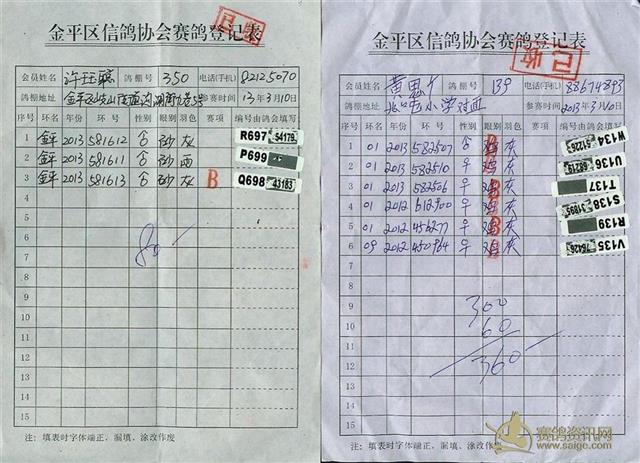 金平区信鸽协会赛鸽登记表
已收
会员姓名 鸽棚号 350 电话(手机) 82125070
鸽棚地址 参赛时间 13年3月10日
序号 环名 年份 环号 性别 眼别 羽色 赛项 编号由鸽会填写
1 金平 2013 581612 合 砂 灰 R697 54179
2 金平 2013 581611 合 砂 雨 P699
3 金平 2013 581613 合 砂 灰 B Q698 43183
4
5
6
7
8
9
10
11
12
13
14
15
80
注：填表时字体端正，漏填、涂改作废
金平区信鸽协会赛鸽登记表
已收
会员姓名 黄 鸽棚号 139 电话(手机) 88674893
鸽棚地址 小学对面 参赛时间 2013年3月10日
序号 环名 年份 环号 性别 眼别 羽色 赛项 编号由鸽会填写
1 01 2013 582507 合 鸡 灰 B W134 61226
2 01 2013 582510 平 鸡 灰 U136 66219
3 01 2013 582506 平 鸡 灰 B T137
4 01 2012 612900 平 鸡 灰 S138 31895
5 01 2012 456277 平 鸡 灰 B R139
6 09 2012 450964 平 鸡 灰 B V135 75426
7
8
9
10
11
12
13
14
15
300
60
360
注：填表时字体端正、漏填、涂改作废
赛鸽资讯网
www.saige.com